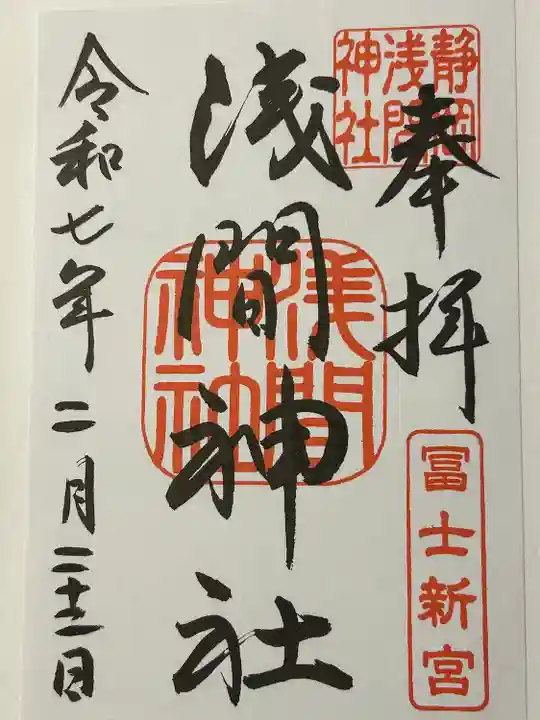 奉拝
静岡
浅間
神社
冨士新宮
浅間神社
浅間
神社
令和七年二月二十日